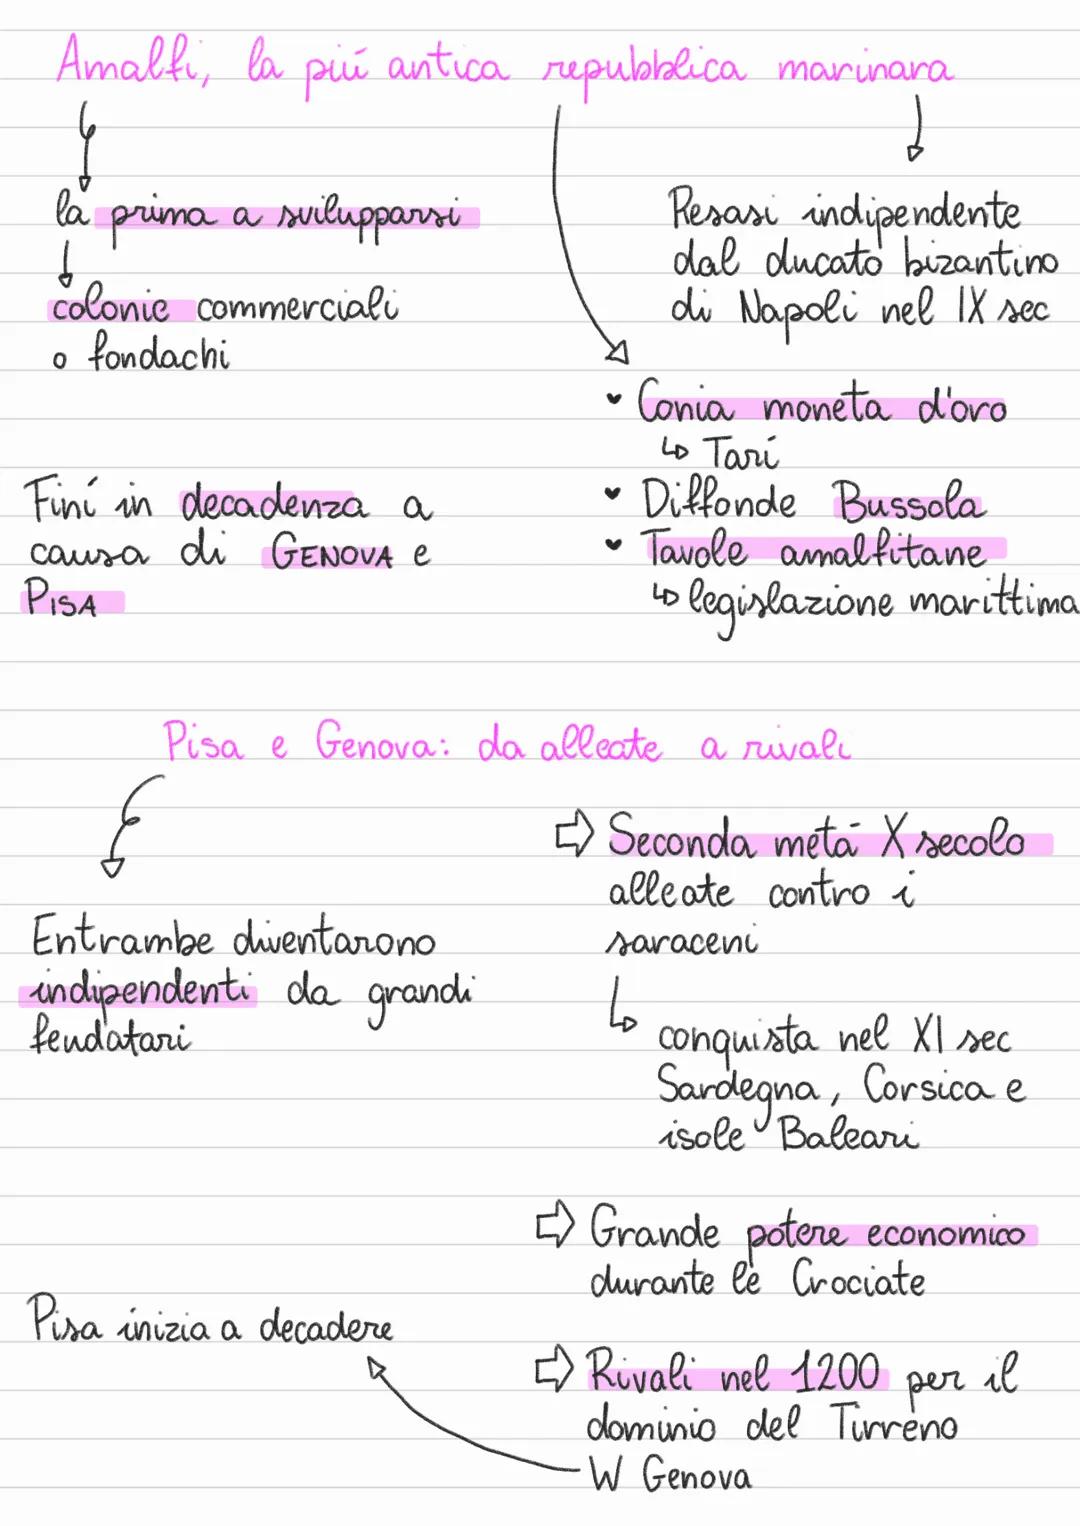 Amalfi, la piú antica repubblica marinara
la prima a svilupparsi
colonie commerciali
o fondachi
Resasi indipendente
dal ducato bizantino
di Napoli nel IX sec
Conia moneta d'oro
↳ Tarí
Diffonde Bussola
Tavole amalfitane
↳ legislazione marittima
Finí in decadenza a
causa di GENOVA e
PISA
Pisa e Genova: da alleate a rivali
Entrambe diventarono
indipendenti da grandi
feudatari
⇨ Seconda metá X secolo
alleate contro i
saraceni
↳ conquista nel XI sec
Sardegna, Corsica e
isole Baleari
⇨ Grande potere economico
durante le Crociate
⇨ Rivali nel 1200 per il
dominio del Tirreno
W Genova
Pisa inizia a decadere